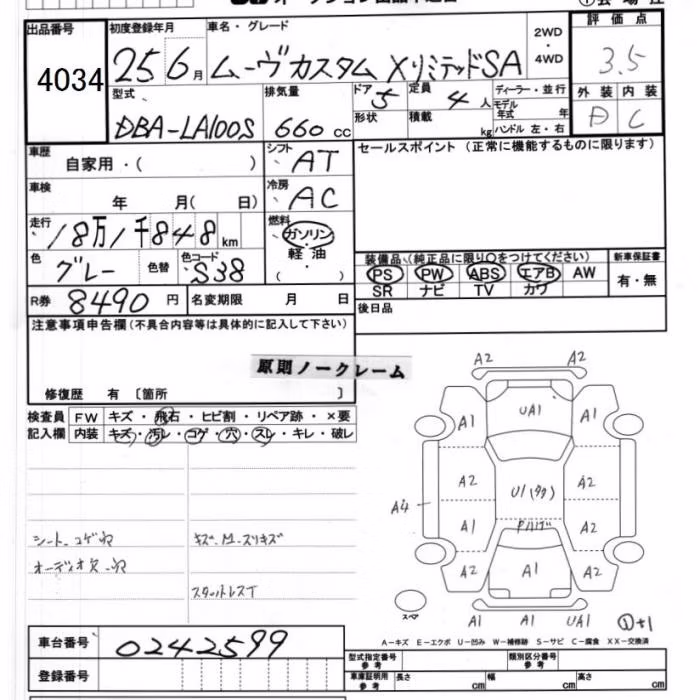 出品番号 4034
初度登録年月 25 6月
車名・グレード ムーヴカスタム XリミテッドSA
2WD・4WD
評価点 3.5
型式 DBA-LA100S
排気量 660 cc
ドア 5 定員 4人
形状 積載 kg
ディーラー・並行
モデル年式 年
ハンドル 左・右
外装 内装
D C
車歴 自家用・( )
シフト AT
セールスポイント (正常に機能するものに限ります)
車検 年 月( 日)
冷房 AC
走行 18万1千848km
燃料 ガソリン・軽油( )
色 グレー 色替 色コード S38
装備品 (純正品に限り○をつけてください)
新車保証書
PS PW ABS エアB AW
SR ナビ TV カワ
有・無
R券 8490円 名変期限 月 日
後日品
注意事項申告欄(不具合内容等は具体的に記入して下さい)
原則ノークレーム
修復歴 有 〔箇所 〕
検査員 FW キズ・飛石・ヒビ割・リペア跡・×要
記入欄 内装 キズ・汚レ・コゲ・穴・スレ・キレ・破レ
A2 A2
A1 UA1 A1
A2 U1(タタ) A2
A4
A1 A2
A2 A1 A2
スペア
A1 A1 UA1 ①+1
シートコゲ穴 キズ・M・スリキズ
オーディオ欠・穴
スタットレスT
A-キズ E-エクボ U-凹み W-補修跡 S-サビ C-腐食 XX-交換済
車台番号 0242599
登録番号
型式指定番号 参考
類別区分番号 参考
車庫証明用 参考 長さ cm 幅 cm 高さ cm